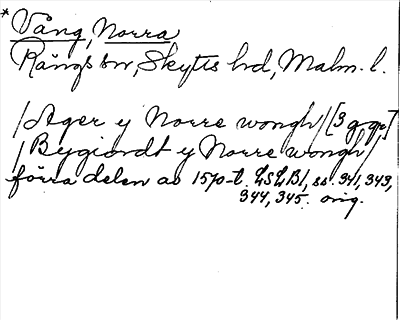 * Vång, Norra
Rängs sn, Skytts hd, Malm. l.
/Ager y Norre wongh/ [3 ggr]
/Bygiordt y Norre wongh/
förra delen av 1570-t. LSLB1, ss. 341, 343,
344, 345. orig.